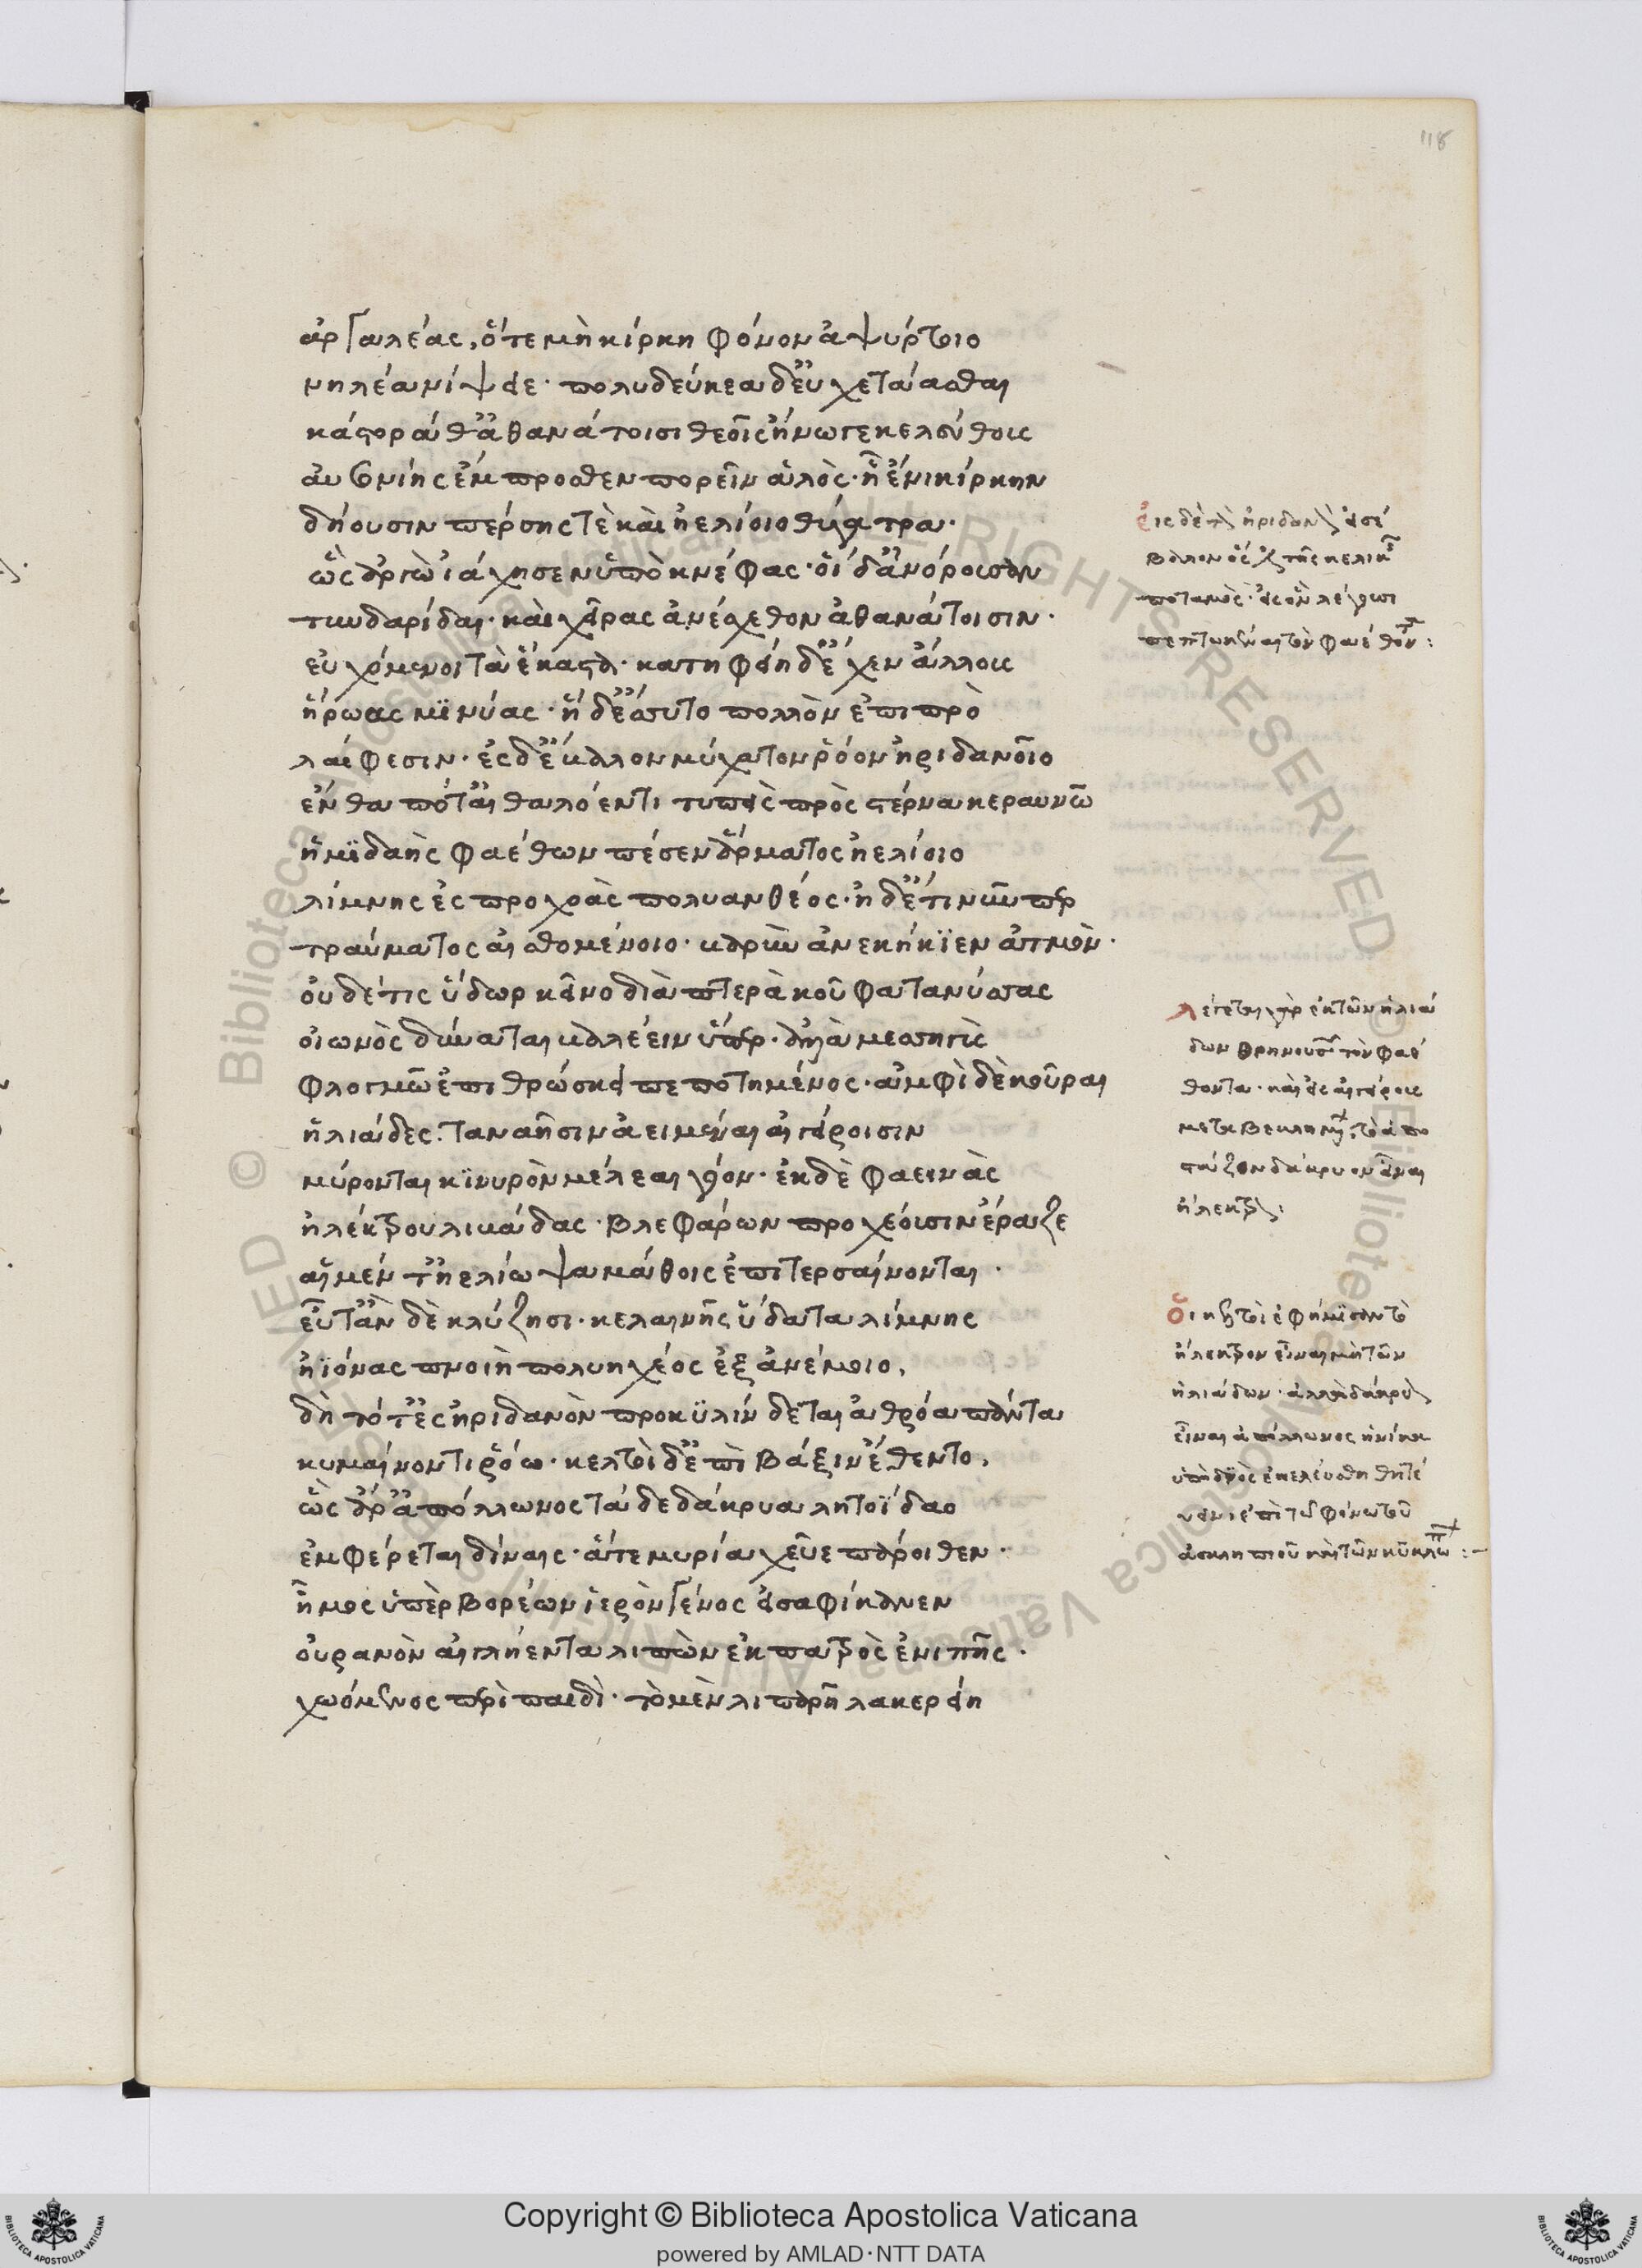 118
ἀργαλέας, ὅτε μὴ κίρκη φόνον ἀψύρτοιο
νηλέα νίψειε· πολυδεύκεα δ' εὐχετάασθαι
κάστορά θ' ἀθανάτοισι θεοῖς ἤνωγε κελεύθους
αὐσονίης ἔμπροσθεν πορεῖν ἁλὸς· ᾗ ἔνι κίρκην
δήουσιν πέρσης τὲ καὶ ἠελίοιο θύγατρα·
ὣς ἀργὼ ἰάχησεν ὑπὸ κνέφας· οἱ δ' ἀνόρουσαν
τυνδαρίδαι· καὶ χεῖρας ἀνέσχεθον ἀθανάτοισιν·
εὐχόμενοι τὰ ἕκαστα· κατηφείη δ' ἔχεν ἄλλους
ἥρωας μϊνύας· ἡ δ' ἔσσυτο πολλὸν ἐπιπρὸ
λαίφεσιν· ἐς δ' ἔβαλον μύχατον ῥόον ἠριδανοῖο
ἔνθα ποτ' αἰθαλόεντι τυπεὶς πρὸς στέρνα κεραυνῶ
ἡμϊδαὴς φαέθων πέσεν ἅρματος ἠελίοιο
λίμνης ἐς προχοὰς πολυανθέος· ἡ δ' ἔτι νῦν περ
τραύματος αἰθομένοιο· βαρὺν ἀνεκήκϊεν ἀτμὸν·
οὐδέ τις ὕδωρ κεῖνο διὰ πτερὰ κοῦφα τανύσσας
οἰωνὸς δύναται βαλέειν ὕπερ· ἀλλὰ μεσσηγὶς
φλογμῶ ἐπιθρώσκει πεποτημένος· ἀμφὶ δὲ κοῦραι
ἡλιάδες· ταναῆσιν ἀειμέναι αἰγείροισιν
μύρονται κϊνυρὸν μέλεαι γόον· ἐκ δὲ φαεινὰς
ἠλέκτρου λιβάδας· βλεφάρων προχέουσιν ἔραζε
αἱ μέν τ' ἠελίω ψαμάθοις ἔπι τερσαίνονται·
εὖτ' ἂν δὲ κλύζησι· κελαινῆς ὕδατα λίμνης
ἠϊόνας πνοιὴ πολυηχέος ἐξ ἀνέμοιο,
δὴ τότ' ἐς ἠριδανὸν προκϋλίνδεται ἀθρόα πάντα
κυμαίνοντι ῥόω· κελτοὶ δ' ἐπὶ βάξιν ἔθεντο,
ὣς ἄρ' ἀπόλλωνος τάδε δάκρυα λητοΐδαο
ἐμφέρεται δίναις· ἅτε μυρία χεῦε πάροιθεν·
ἦμος ὑπὲρ βορέων ἱερὸν γένος εἰσαφίκανεν
οὐρανὸν αἰγλήεντα λιπὼν ἐκ πατρὸς ἐνιπῆς·
χωόμενος περὶ παιδὶ· τὸ μὲν λιπαρῆ λακερείη
εἰς δὲ τὸν ἠριδανὸν εἰσέ
βαλλον ὅς
ποταμὸς· εἰς ὃν λέγουσι
πεπτωκέναι τὸν φαέθοντα:
λέγεται γὰρ ἐκ τῶν ἡλιά
δων θρηνουσῶν τὸν φαέ
θοντα· καὶ εἰς αἰγείρους
μεταβεβλημένων, τὸ ἀπο
στάζον δάκρυον εἶναι
ἤλεκτρον:
οἱ κελτοὶ ἐφήμϊσαν τὸ
ἤλεκτρον εἶναι μὴ τῶν
ἡλιάδων· ἀλλὰ δάκρυον
εἶναι ἀπόλλωνος ἡνίκα
ὑπὸ διὸς ἐκελεύσθη θητεύ
ειν ἐπὶ τῶ φόνω τοῦ
ἀσκληπιοῦ καὶ τῶν κυκλώπων:-
Copyright © Biblioteca Apostolica Vaticana
powered by AMLAD·NTT DATA